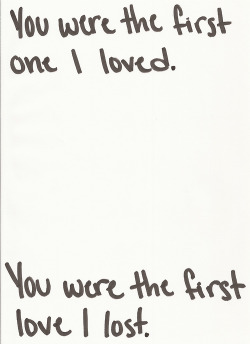 You were the first
one I loved.
You were the first
love I lost.